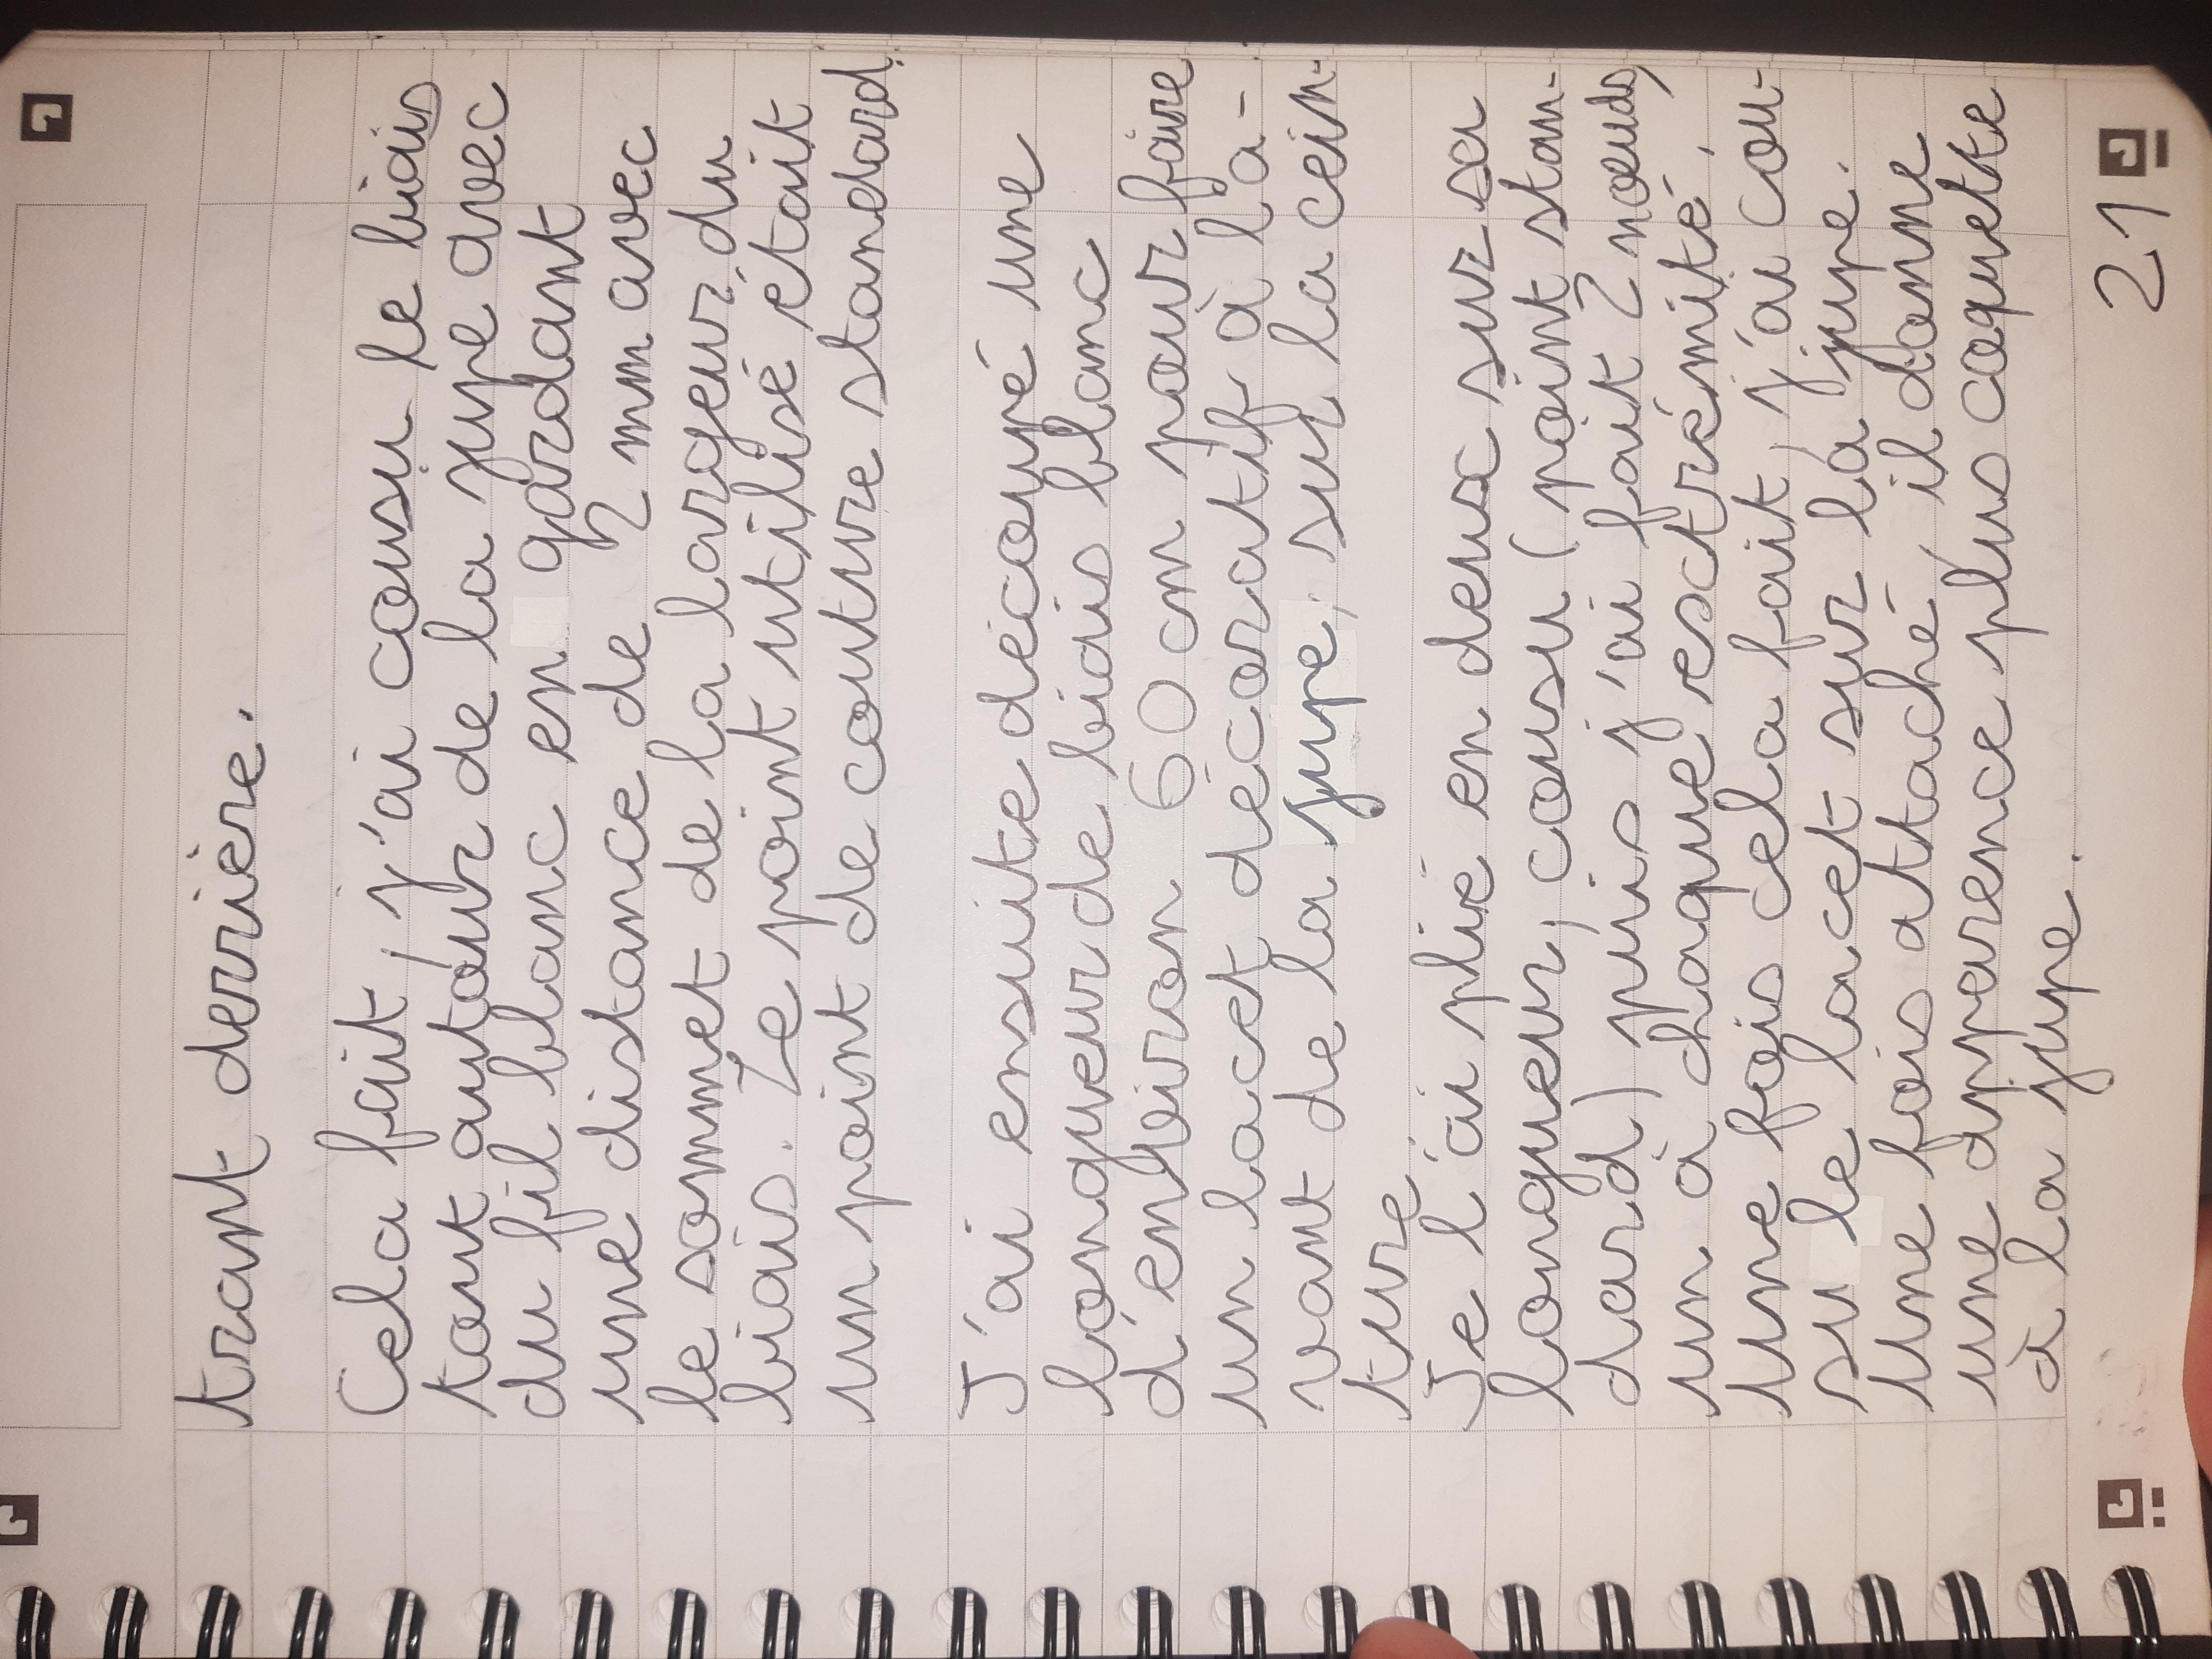 trant derrière.
Cela fait, j'ai cousu le biais
tout autour de la jupe avec
du fil blanc en gardant
une distance de 2 mm avec
le sommet de la largeur du
biais. Le point utilisé était
un point de couture standard.
J'ai ensuite découpé une
longueur de biais blanc
d'environ 60 cm pour faire
un lacet décoratif à l'a-
vant de la jupe, sur la cein-
ture.
Je l'ai plié en deux sur sa
longueur, cousu (point stan-
dard) puis j'ai fait 2 noeuds,
un à chaque extrémité.
une fois cela fait, j'ai cou-
su le lacet sur la jupe.
Une fois attaché, il donne
une apparence plus coquette
à la jupe.
21